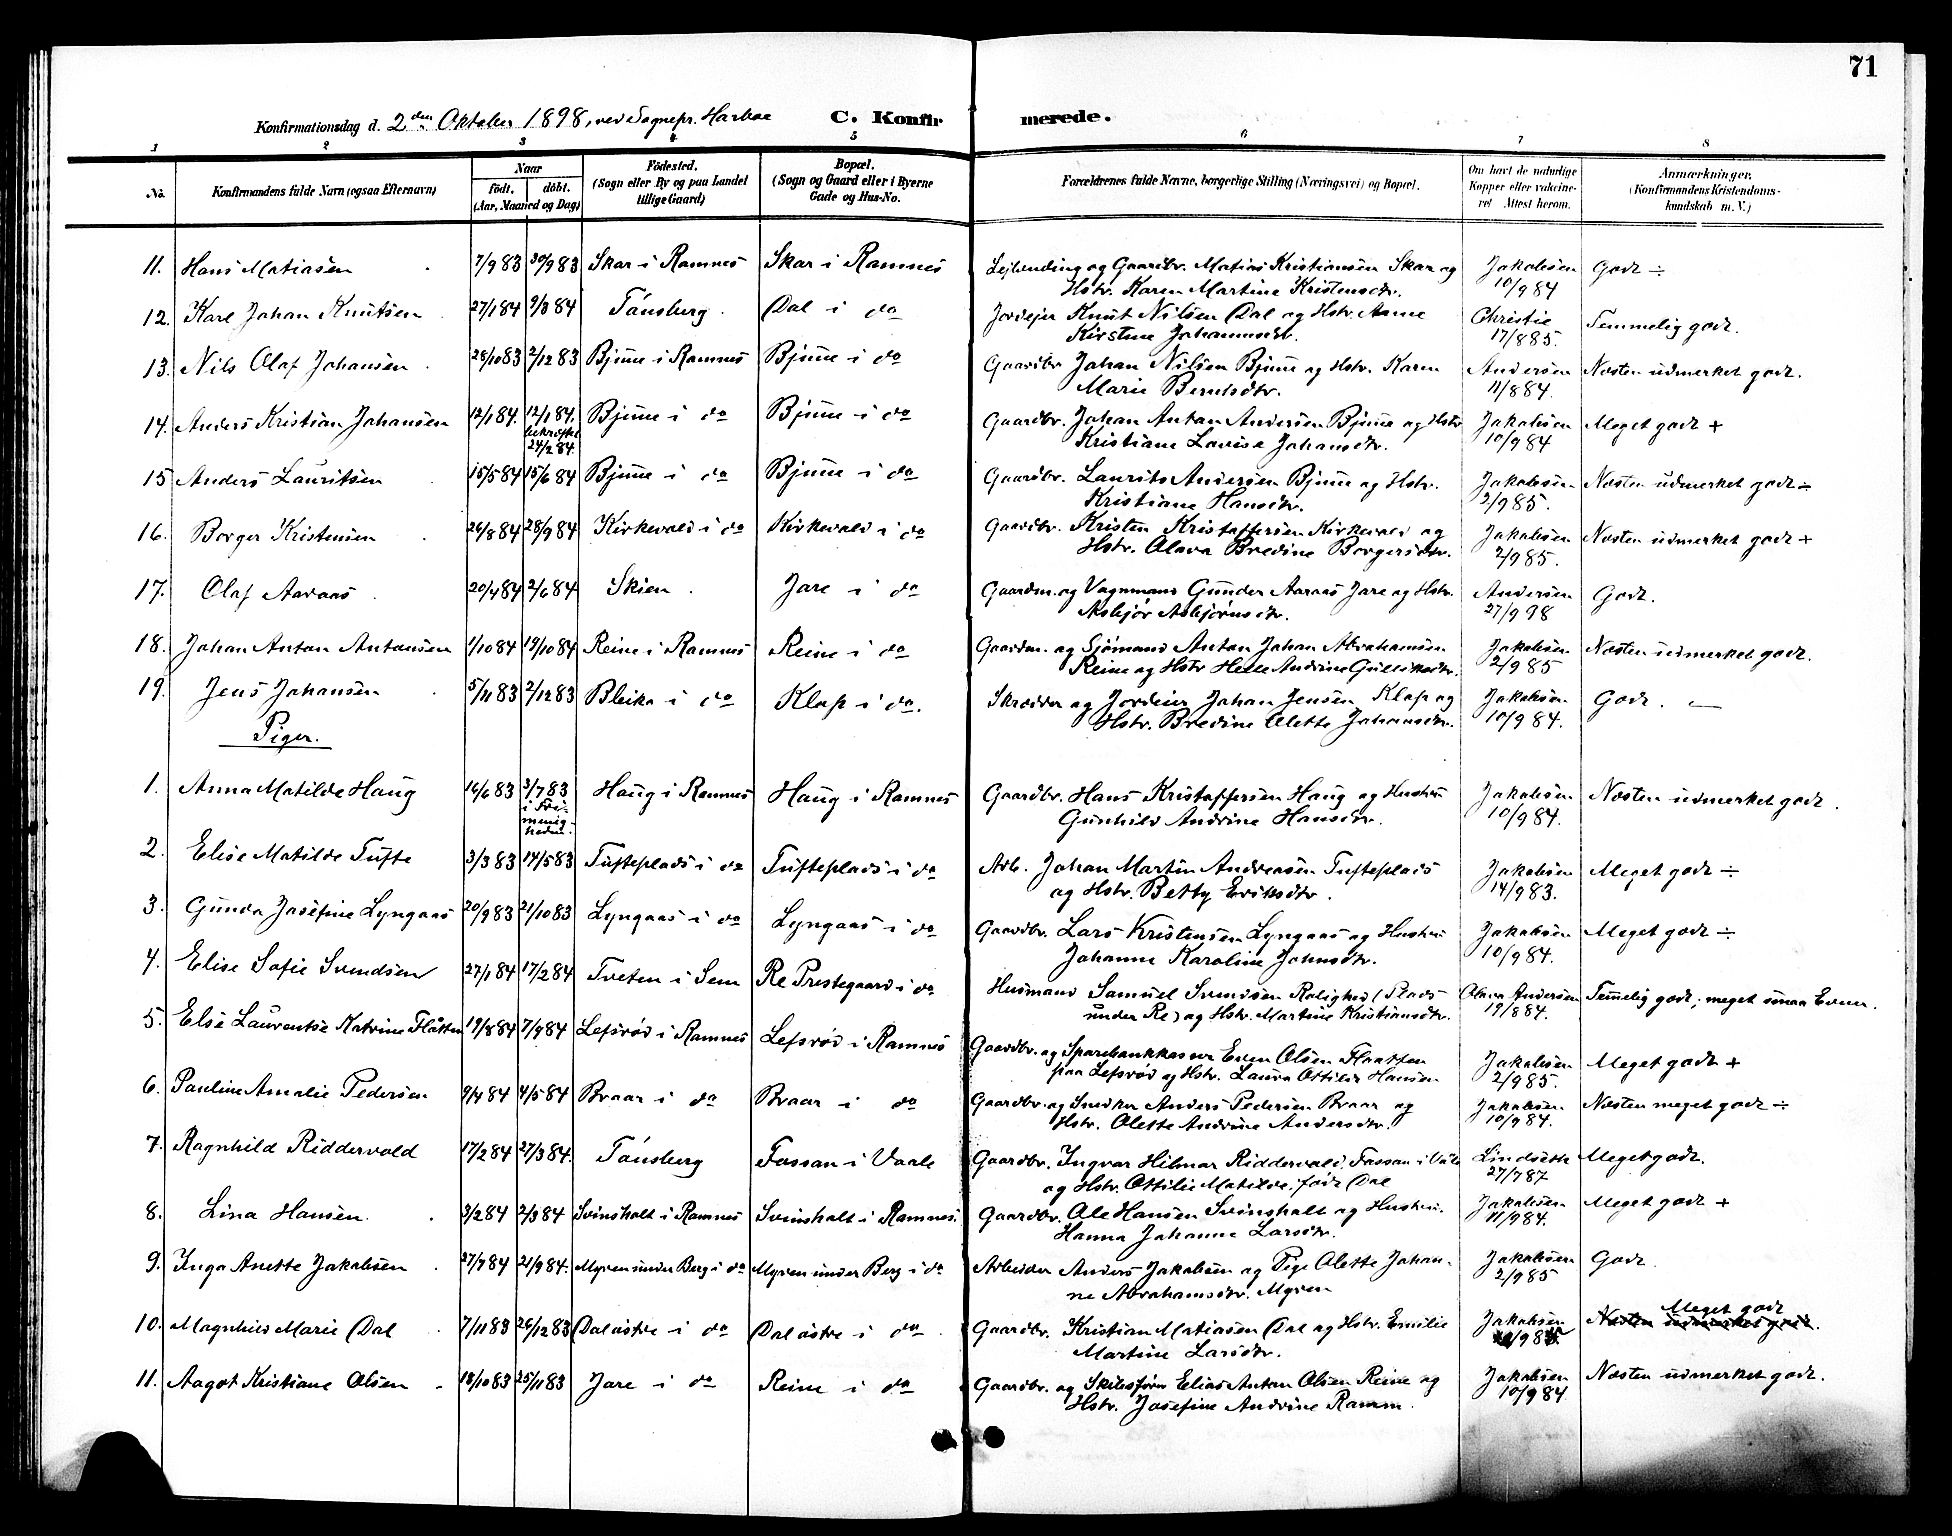 71
Konfirmationsdag d. 2den Oktober 1898, ved Sognepr. Harboe C. Konfirmerede.
1 2 3 4 5 6 7 8
No. Konfirmandens fulde Navn (ogsaa Efternavn) Naar født. døbt. (Aar, Maaned og Dag) Fødested. (Sogn eller By og paa Landet tillige Gaard) Bopæl. (Sogn og Gaard eller i Byerne Gade og Hus-No. Forældrenes fulde Navne, borgerlige Stilling (Næringsvei) og Bopæl. Om havt de naturlige Kopper eller vakcineret Attest herom. Anmærkninger. (Konfirmandens Kristendomskundskab m. V.)
11. Hans Matiasen 7/9 83 30/9 83 Skar i Ramnes Skar i Ramnes Leilending og Gaardbr. Matias Kristiansen Skar og Jakobsen Godt ÷
Hstr. Karen Martine Kristensdtr. 10/9 84
12. Karl Johan Knutsen 27/1 84 9/3 84 Tønsberg Dal i do Jordejer Knut Nilsen Dal og Hstr. Anne Christie Temmelig godt.
Kirstine Johannesdtr. 17/8 85.
13. Nils Olaf Johansen 28/10 83 2/12 83 Bjune i Ramnes Bjune i do Gaardbr Johan Nilsen Bjune og Hstr. Karen Andersen Næsten udmerket godt.
Marie Berntsdtr. 11/8 84.
14. Anders Kristian Johansen 12/1 84. 12/1 84. bekræftet 24/2 84. Bjune i do Bjune i do Gaardbr. Johan Anton Andersen Bjune og Hstr Jakobsen Meget godt +
Kristiane Lovise Johansdtr. 10/9 84
15 Anders Lauritsen 15/5 84 15/6 84 Bjune i do Bjune i do Gaardbr. Laurits Andersen Bjune og Hstr. Jakobsen Næsten udmerket godt ÷
Kristiane Hansdtr. 2/9 85.
16. Borger Kristensen 26/8 84 28/9 84 Kirkevold i do Kirkevold i do Gaardbr. Kristen Kristoffersen Kirkevold og Jakobsen Næsten udmerket godt +
Hstr. Olava Bredine Borgersdtr. 2/9 85.
17. Olaf Aaraas 20/4 84 2/6 84 Skien. Jare i do Gaardm. og Vognmand Gunder Aaraas Jare og Hstr. Andersen Godt.
Asbjør Asbjørnsdtr. 27/9 98
18. Johan Anton Antonsen 1/10 84 19/10 84 Reine i Ramnes Reine i do Gaardm. og Sjømand Anton Johan Abrahamsen Jakobsen Næsten udmerket godt.
Reine og Hstr Helle Andrine Gulliksdtr. 2/9 85
19. Jens Johansen 5/11 83 2/12 83 Bleika i do Klop i do. Skrædder og Jordeier Johan Jensen Klop og Jakobsen Godt.
Hstr. Bredine Olette Johansdtr. 10/9 84.
Piger.
1. Anna Matilde Haug 16/6 83 3/7 83 i Frimenigheden. Haug i Ramnes Haug i Ramnes Gaardbr. Hans Kristoffersen Haug og Hustru Jakobsen Næsten udmerket godt.
Gunhild Andrine Hansdtr. 10/9 84.
2. Elise Matilde Tufte 3/3 83 14/5 83 Tufteplads i do Tufteplads i do Arb. Johan Martin Andreasen Tufteplads Jakobsen Meget godt ÷
og Hstr. Betty Eriksdtr. 14/9 83.
3. Gunda Josefine Lyngaas 20/9 83 21/10 83 Lyngaas i do Lyngaas i do Gaardbr. Lars Kristensen Lyngaas og Hustru Jakobsen Meget godt ÷
Johanne Karoline Johnsdtr. 10/9 84.
4. Elise Sofie Svendsen 27/1 84 17/2 84 Tveten i Sem Re Prestegaard i do Husmand Samuel Svendsen Rolighed (Plads Olava Andersen Temelig godt; meget smaa Evner.
under Re) og Hstr. Martine Kristiansdtr. 17/8 84.
5. Else Laurentse Katrine Flåtten 19/8 84 7/9 84 Lefsrød i Ramnes Lefsrød i Ramnes Gaardbr. og Sparebankkasser Even Olsen Flaatten Jakobsen Meget godt +
paa Lefsrød og Hstr. Laura Ottilde Hansen 2/9 85.
6. Pauline Amalie Pedersen 9/4 84 4/5 84 Braar i do Braar i do Gaardbr. og Snedker Anders Pedersen Braar og Jakobsen Næsten meget godt ÷
Hstr. Olette Andrine Andersdtr. 10/9 84.
7. Ragnhild Riddervold 17/2 84 27/3 84. Tønsberg Fossan i Vaale Gaardbr. Ingvar Hilmar Riddervold, Fossan i Våle Lindseth Meget godt.
og Hstr. Ottilie Matilde, født Dal 27/7 87
8. Lina Hansen. 3/2 84 2/3 84 Svinsholt i Ramnes Svinsholt i Ramnes. Gaardbr. Ole Hansen Svinsholt og Hustru. Jakobsen Meget godt +
Hanna Johanne Larsdtr. 11/9 84.
9. Inga Anette Jakobsen 27/7 84 21/9 84. Myren under Berg i do Myren under Berg i do Arbeider Anders Jakobsen og Pige Olette Johan- Jakobsen Godt.
ne Abrahamsdtr. Myren 2/9 85
10. Magnhild Marie Dal 7/11 83 26/12 83 Dal østre i do Dal østre i do. Gaardbr. Kristian Matiasen Dal og Hstr. Emilie Jakobsen Meget godt
Martine Larsdtr. Næsten udmerket godt.
11. Aagot Kristiane Olsen 18/10 83 25/11 83 Jare i do Reine i do Gaardbr. og Skibsfører Elias Anton Olsen Reine og Jakobsen Næsten udmerket godt.
Hstr. Josefine Andrine Ramm. 10/9 84